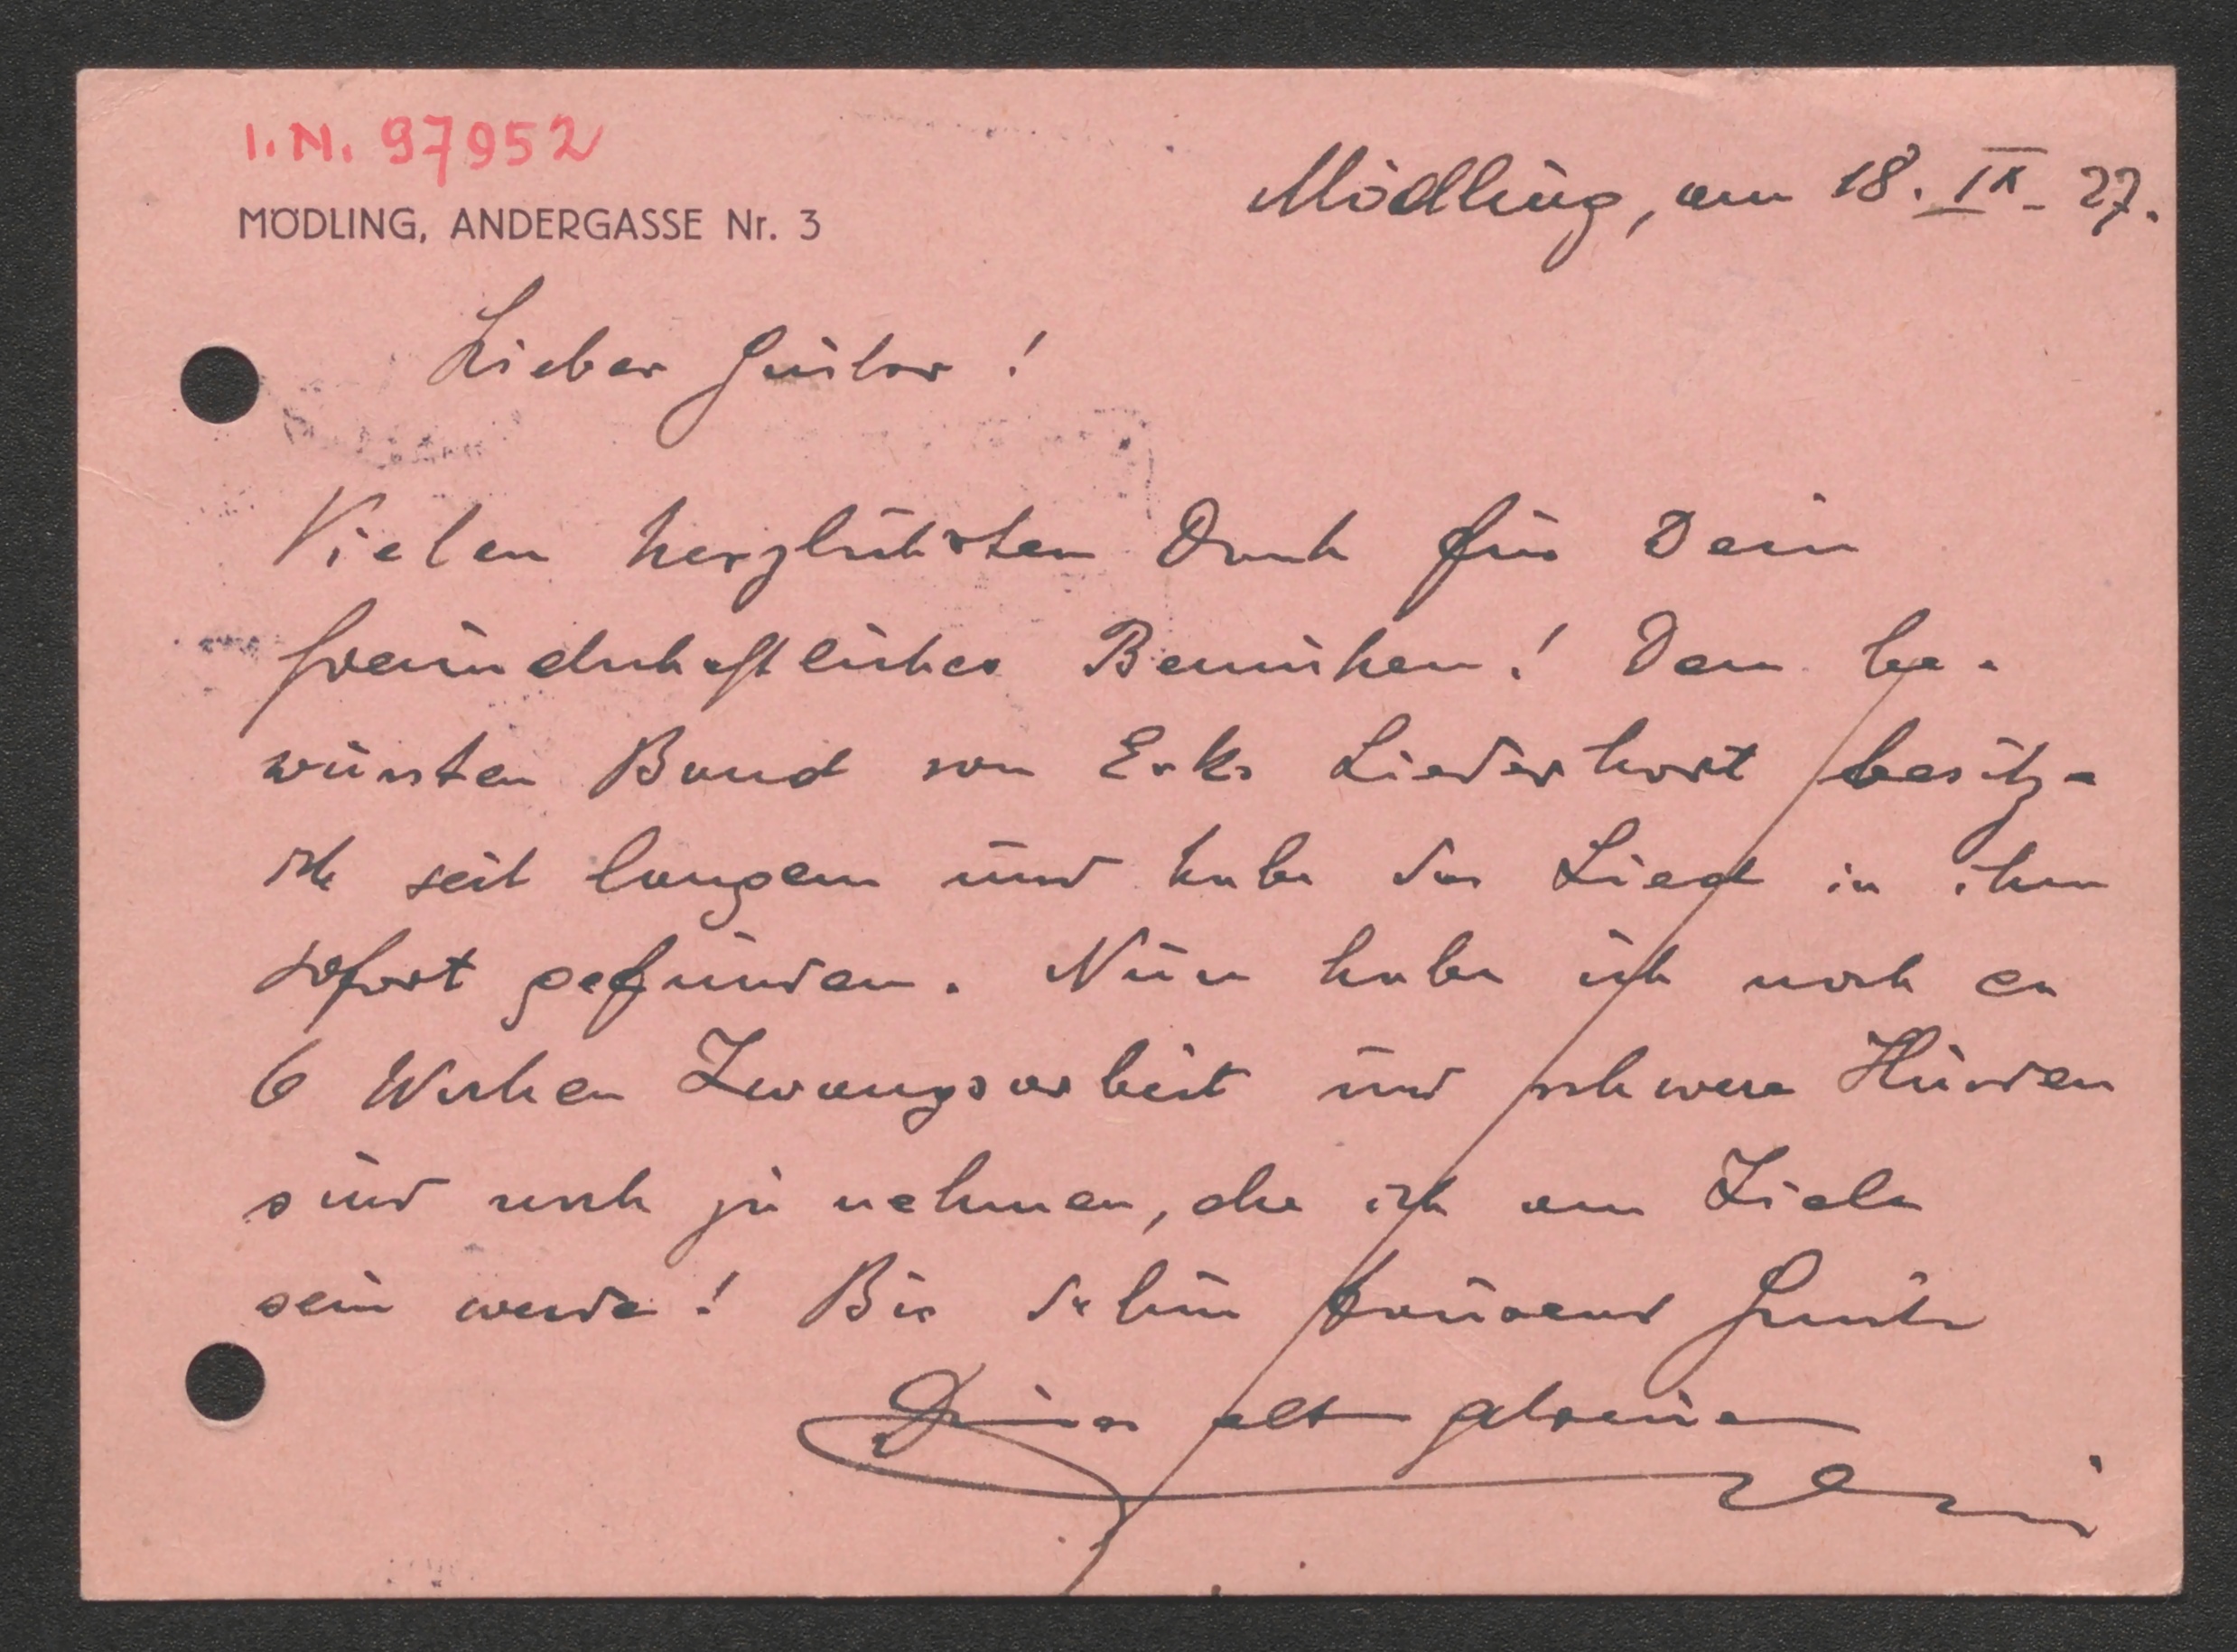 I.N. 97952
MÖDLING, ANDERGASSE Nr. 3
Mödling, am 18. IX. 27.
Lieber Guido!
Vielen herzlichsten Dank für Dein
freundschaftliches Bemühen! Den be-
wussten Band von Erks Liederhort besitze
ich seit langem und habe das Lied in ihm
sofort gefunden. Nun habe ich noch ca
6 Wochen Zwangsarbeit und schwere Hürden
sind noch zu nehmen, ehe ich am Ziele
sein werde! Bis dahin tausend Grüsse
Dein alt getreuer